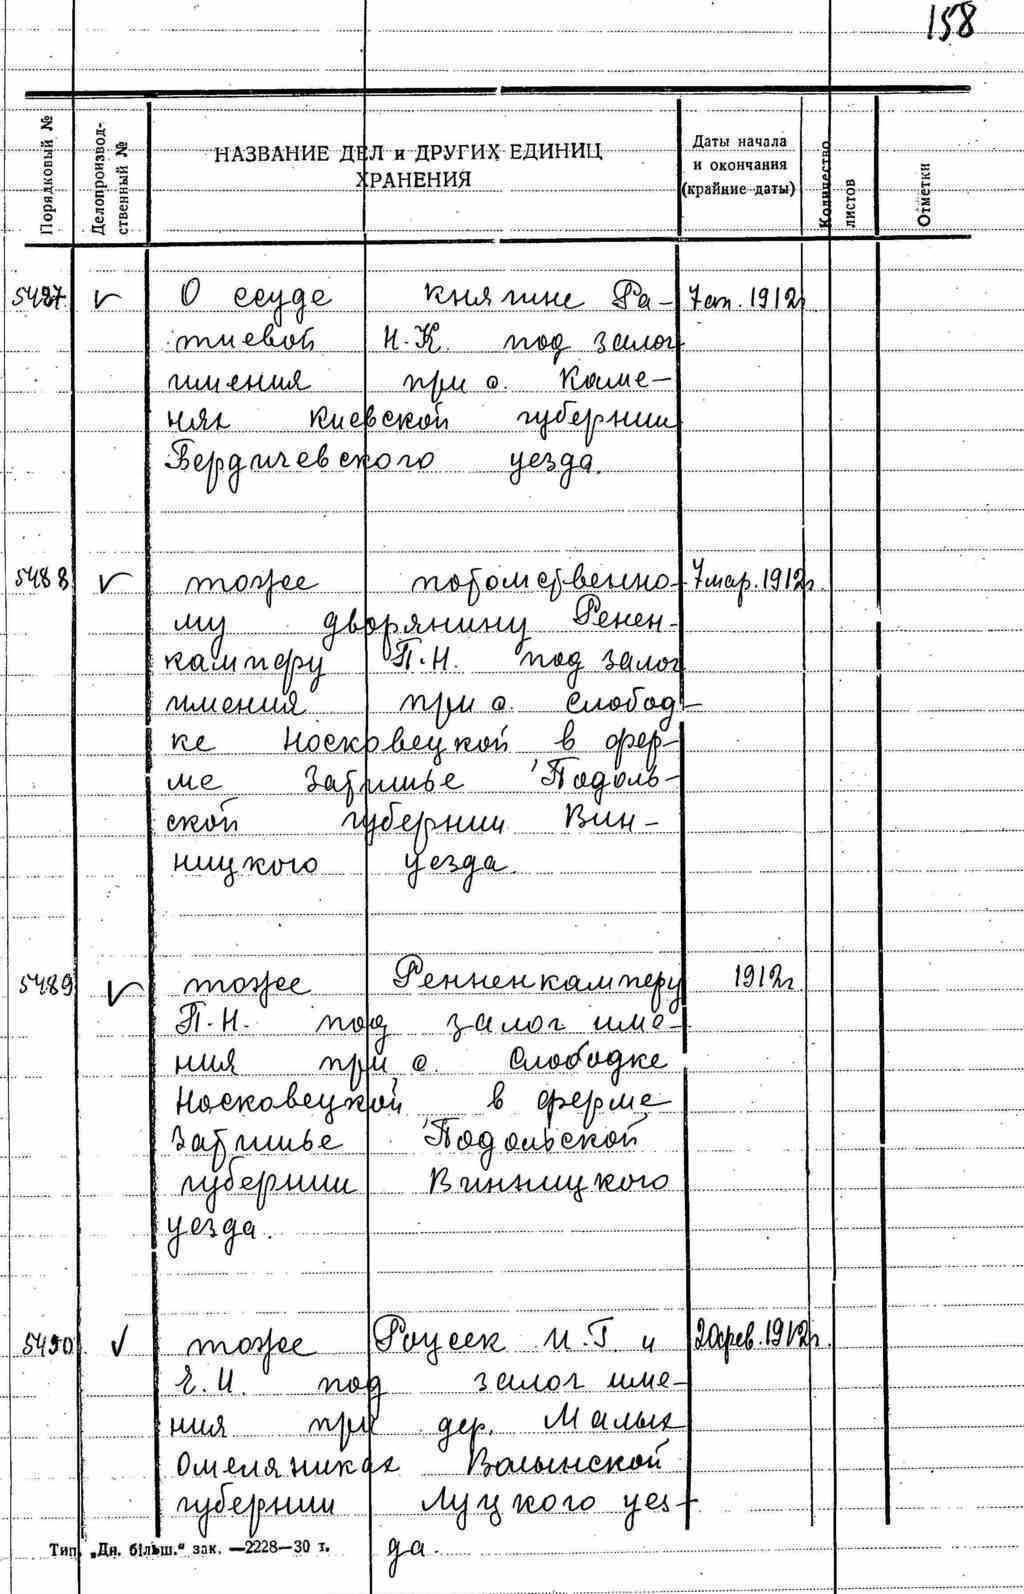 158
Порядковый №
Делопроизвод-
ственный №
НАЗВАНИЕ ДЕЛ и ДРУГИХ ЕДИНИЦ
ХРАНЕНИЯ
Даты начала
и окончания
(крайние даты)
Количество
листов
Отметки
5487 О ссуде княгине Ра- 7 ап. 1912г
тиевой Н.К. под залог
имения при с. Каме-
нях Киевской губернии
Бердичевского уезда.
5488 тоже потомственно- 7 мар. 1912г.
му дворянину Ренен-
кампфу П.Н. под залог
имения при с. Слобод-
ке Носковецкой в фер-
ме Затишье Подоль-
ской губернии Вин-
ницкого уезда.
5489 тоже Ренненкампфу 1912г.
П.Н. под залог име-
ния при с. Слободке
Носковецкой в ферме
Затишье Подольской
губернии Винницкого
уезда.
5490 тоже Роусек И.Г. и 20 фев. 1912г.
Е.И. под залог име-
ния при дер. Малых
Омеляниках Волынской
губернии Луцкого уез-
да.
Тип. „Дн. більш." зак. —2228—30 т.